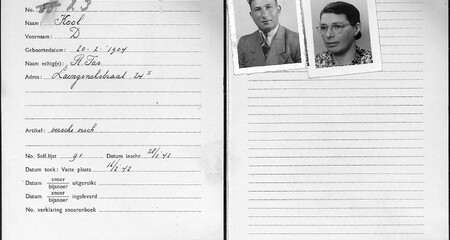 No. 23
Naam: Kool
Voornaam: D
Geboortedatum: 20-2-1904
Naam echtg(e): R. Tas
Adres: 24
Artikel: versche visch
No. Soll.lijst 91 Datum inschr. 28/1 42
Datum toek: Vaste plaats 16/2 42
Datum snoer uitgereikt
bijsnoer
Datum snoer ingeleverd
bijsnoer
No. verklaring snoerenboek